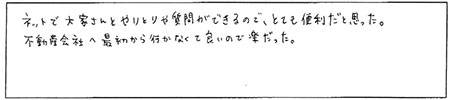 ネットで大家さんとやりとりや質問ができるので、とても便利だと思った。
不動産会社へ最初から行かなくて良いので楽だった。